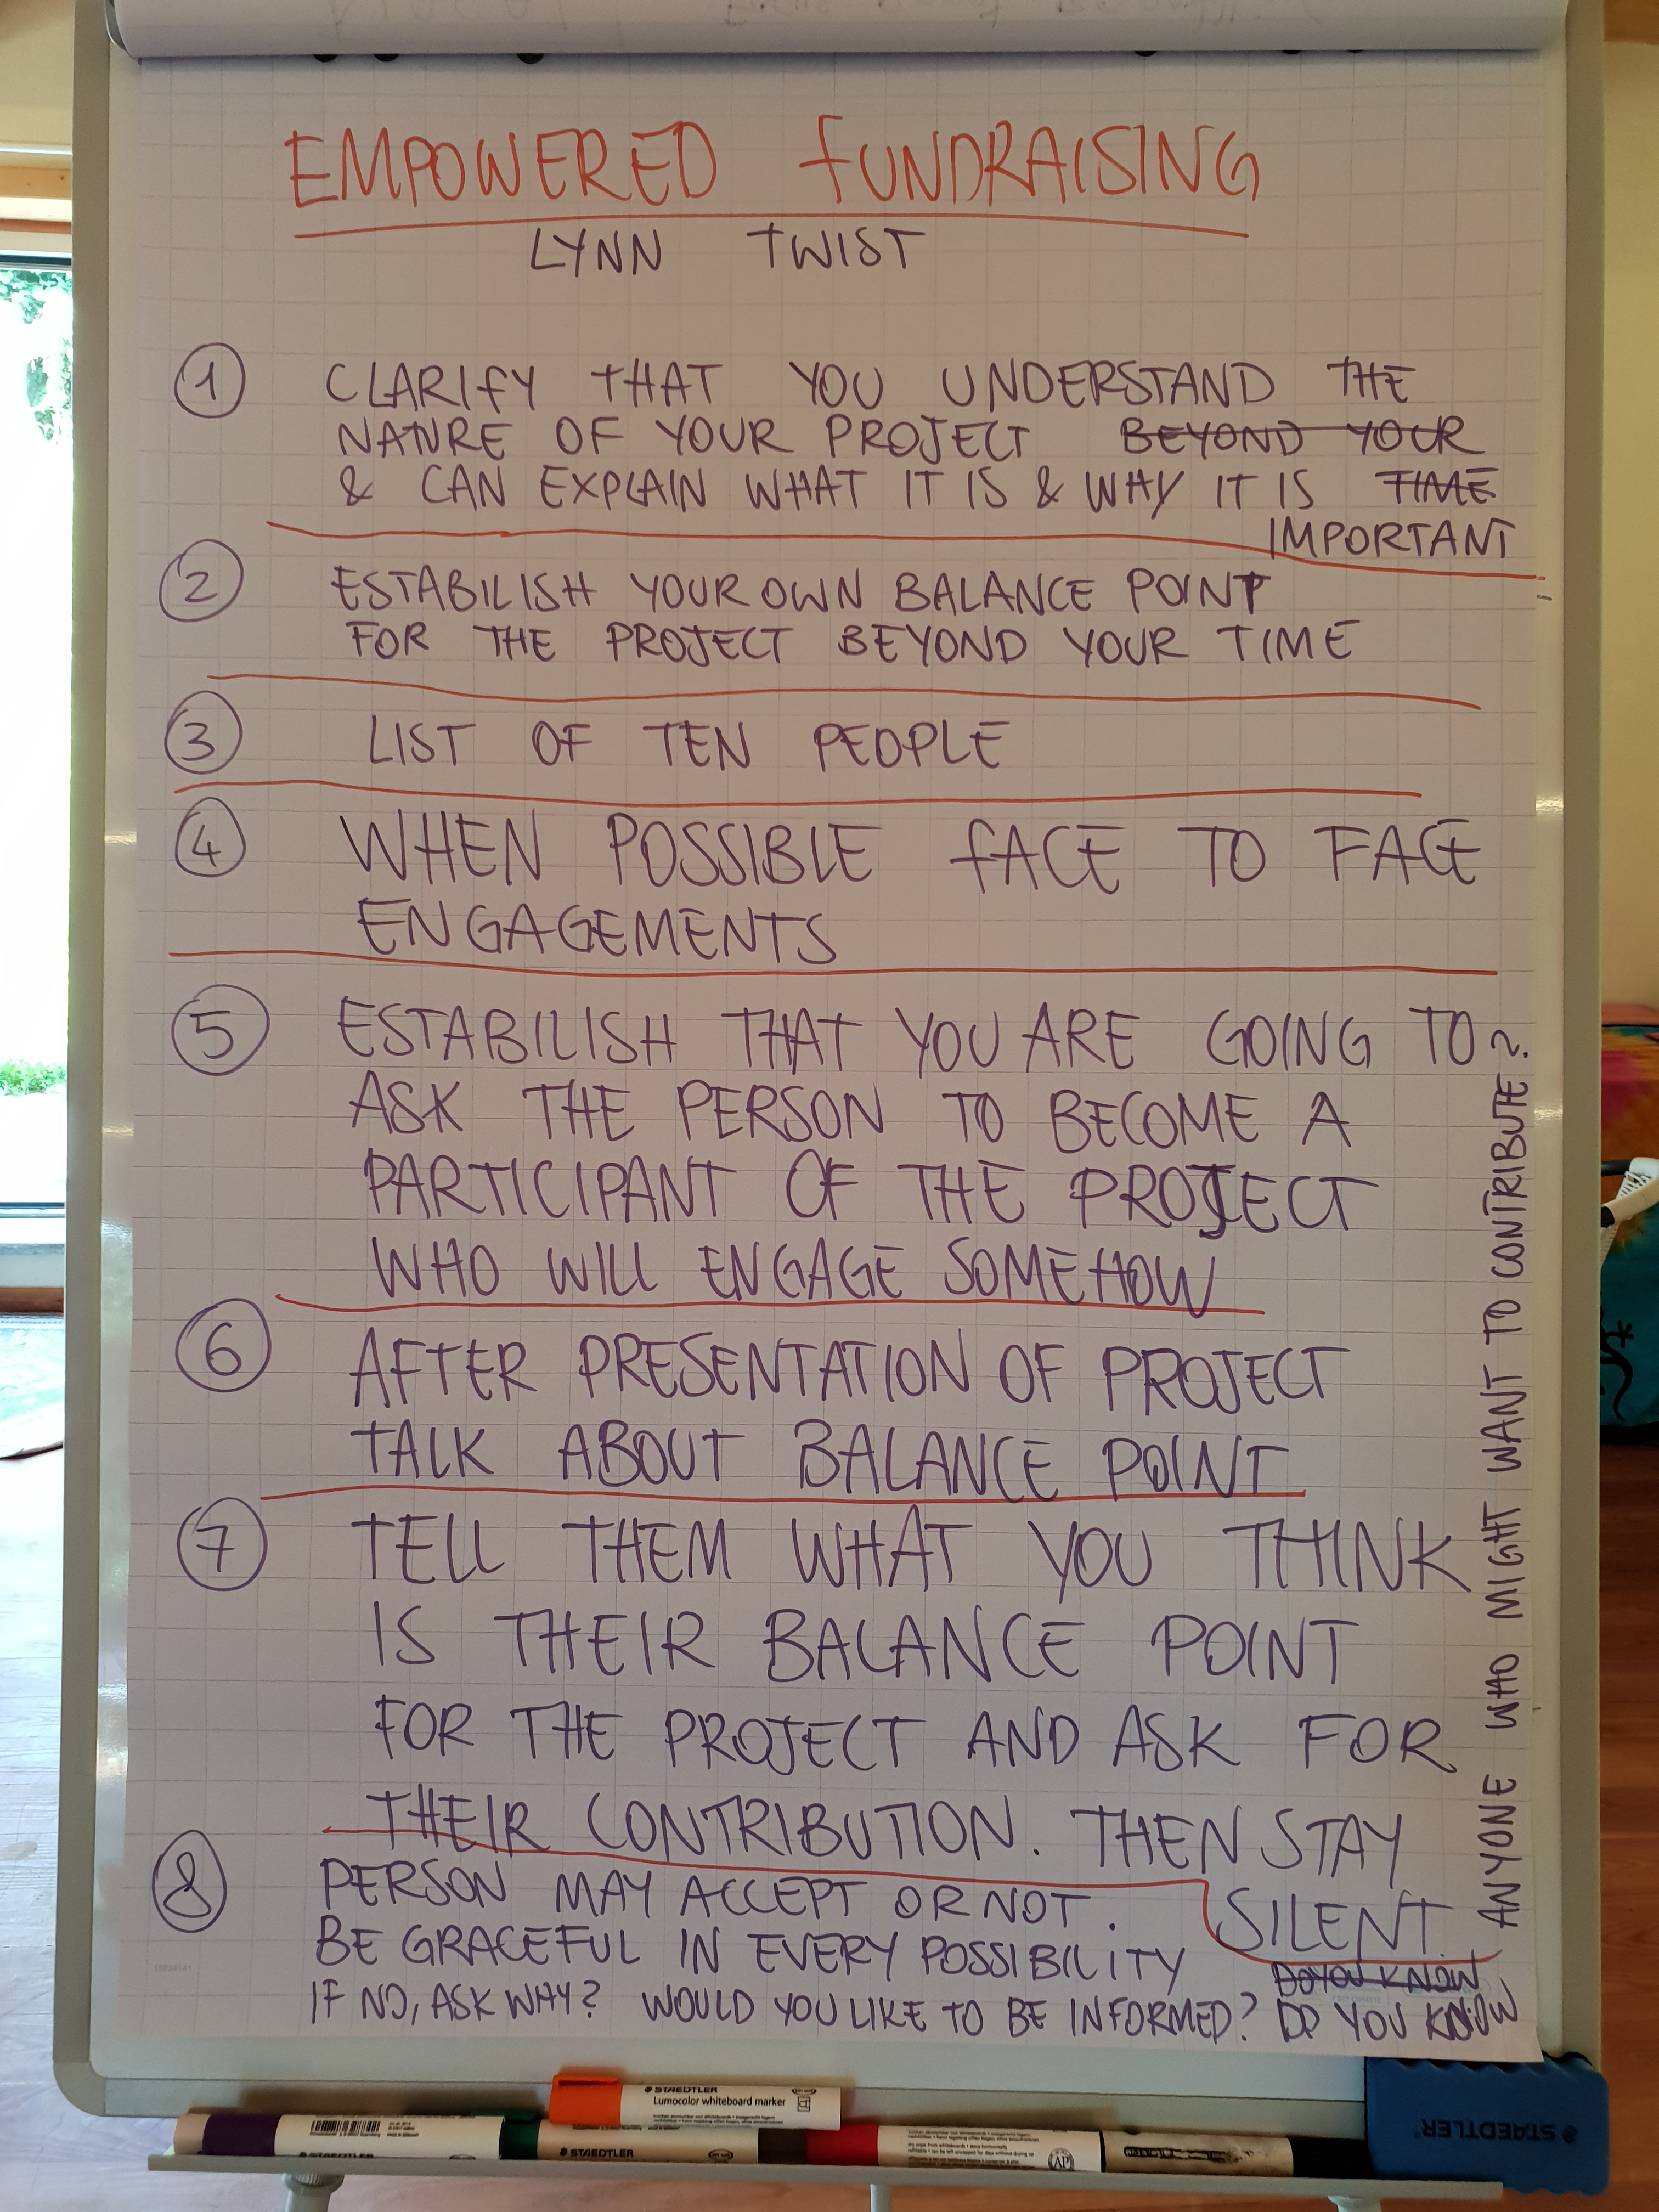 EMPOWERED FUNDRAISING
LYNN TWIST
1 CLARIFY THAT YOU UNDERSTAND THE
NATURE OF YOUR PROJECT BEYOND YOUR
& CAN EXPLAIN WHAT IT IS & WHY IT IS TIME
IMPORTANT
2 ESTABILISH YOUR OWN BALANCE POINT
FOR THE PROJECT BEYOND YOUR TIME
3 LIST OF TEN PEOPLE
4 WHEN POSSIBLE FACE TO FACE
ENGAGEMENTS
5 ESTABILISH THAT YOU ARE GOING TO
ASK THE PERSON TO BECOME A
PARTICIPANT OF THE PROJECT
WHO WILL ENGAGE SOMEHOW
6 AFTER PRESENTATION OF PROJECT
TALK ABOUT BALANCE POINT
7 TELL THEM WHAT YOU THINK
IS THEIR BALANCE POINT
FOR THE PROJECT AND ASK FOR
THEIR CONTRIBUTION. THEN STAY
SILENT.
8 PERSON MAY ACCEPT OR NOT.
BE GRACEFUL IN EVERY POSSIBILITY
DO YOU KNOW
IF NO, ASK WHY? WOULD YOU LIKE TO BE INFORMED? DO YOU KNOW
ANYONE WHO MIGHT WANT TO CONTRIBUTE?
STAEDTLER
Lumocolor whiteboard marker
STAEDTLER
AP
STAEDTLER